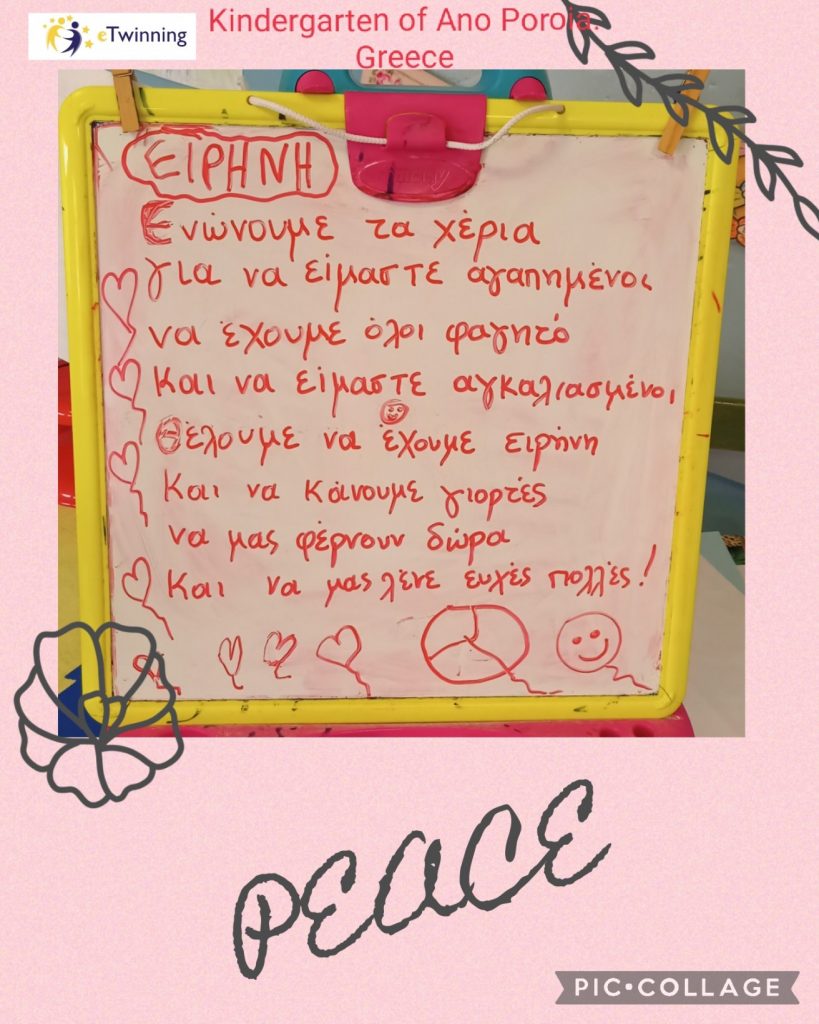 eTwinning
Kindergarten of Ano Poroia.
Greece
ΕΙΡΗΝΗ
Ενώνουμε τα χέρια
για να είμαστε αγαπημένοι
να έχουμε όλοι φαγητό
και να είμαστε αγκαλιασμένοι
Θέλουμε να έχουμε ειρήνη
και να κάνουμε γιορτές
να μας φέρνουν δώρα
και να μας λένε ευχές πολλές!
PEACE
PIC•COLLAGE